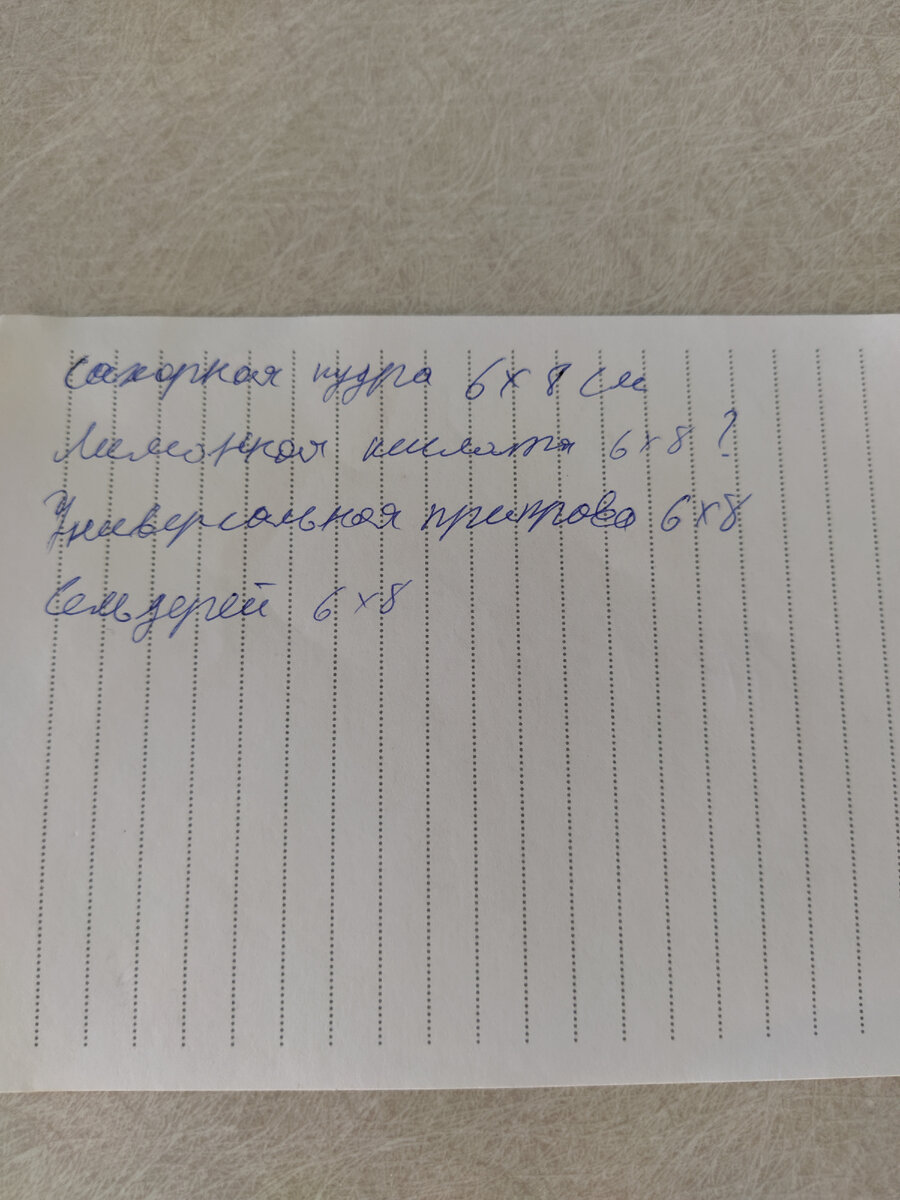 Сахарная пудра 6x8 см
Лимонная кислота 6x8?
Универсальная приправа 6x8
Сельдерей 6x8